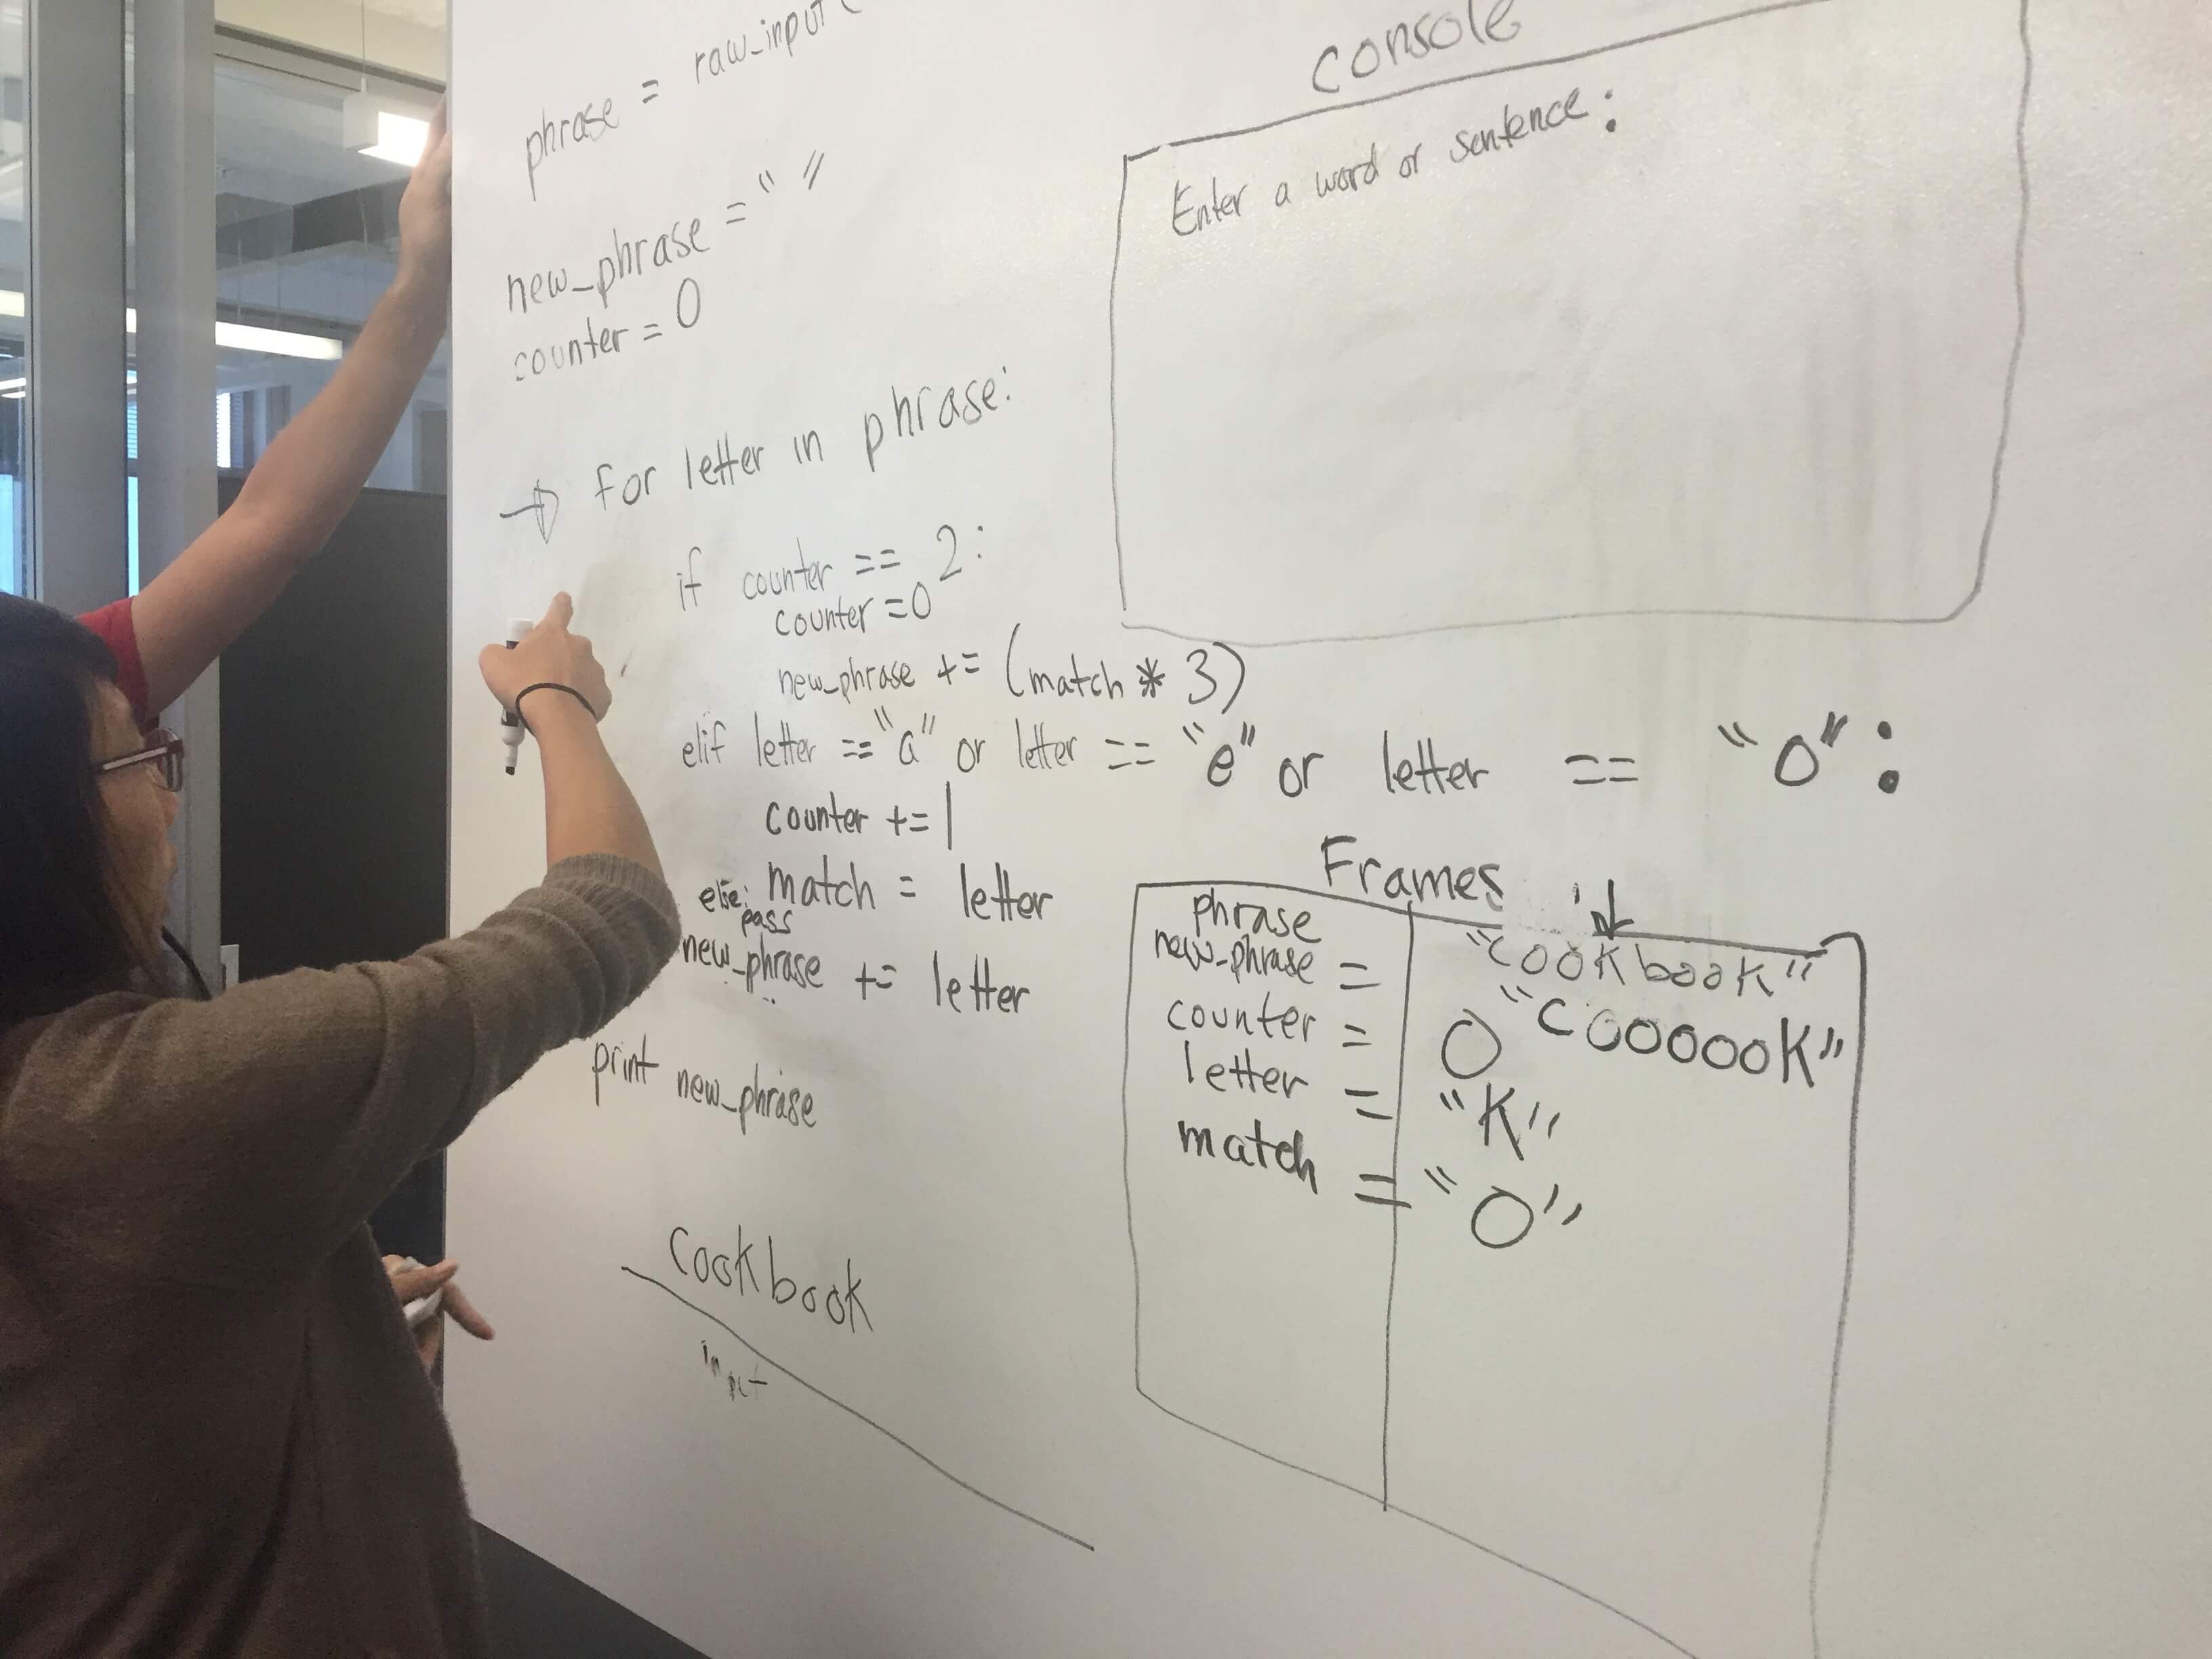 phrase = raw_input(
new_phrase = " "
counter = 0
for letter in phrase:
if counter == 2:
counter = 0
new_phrase += (match * 3)
elif letter == "a" or letter == "e" or letter == "o":
counter += 1
match = letter
else:
pass
new_phrase += letter
print new_phrase
cookbook
console
Enter a word or sentence:
Frames
phrase "cookbook"
new_phrase = "coooook"
counter = 0
letter = "K"
match = "O"